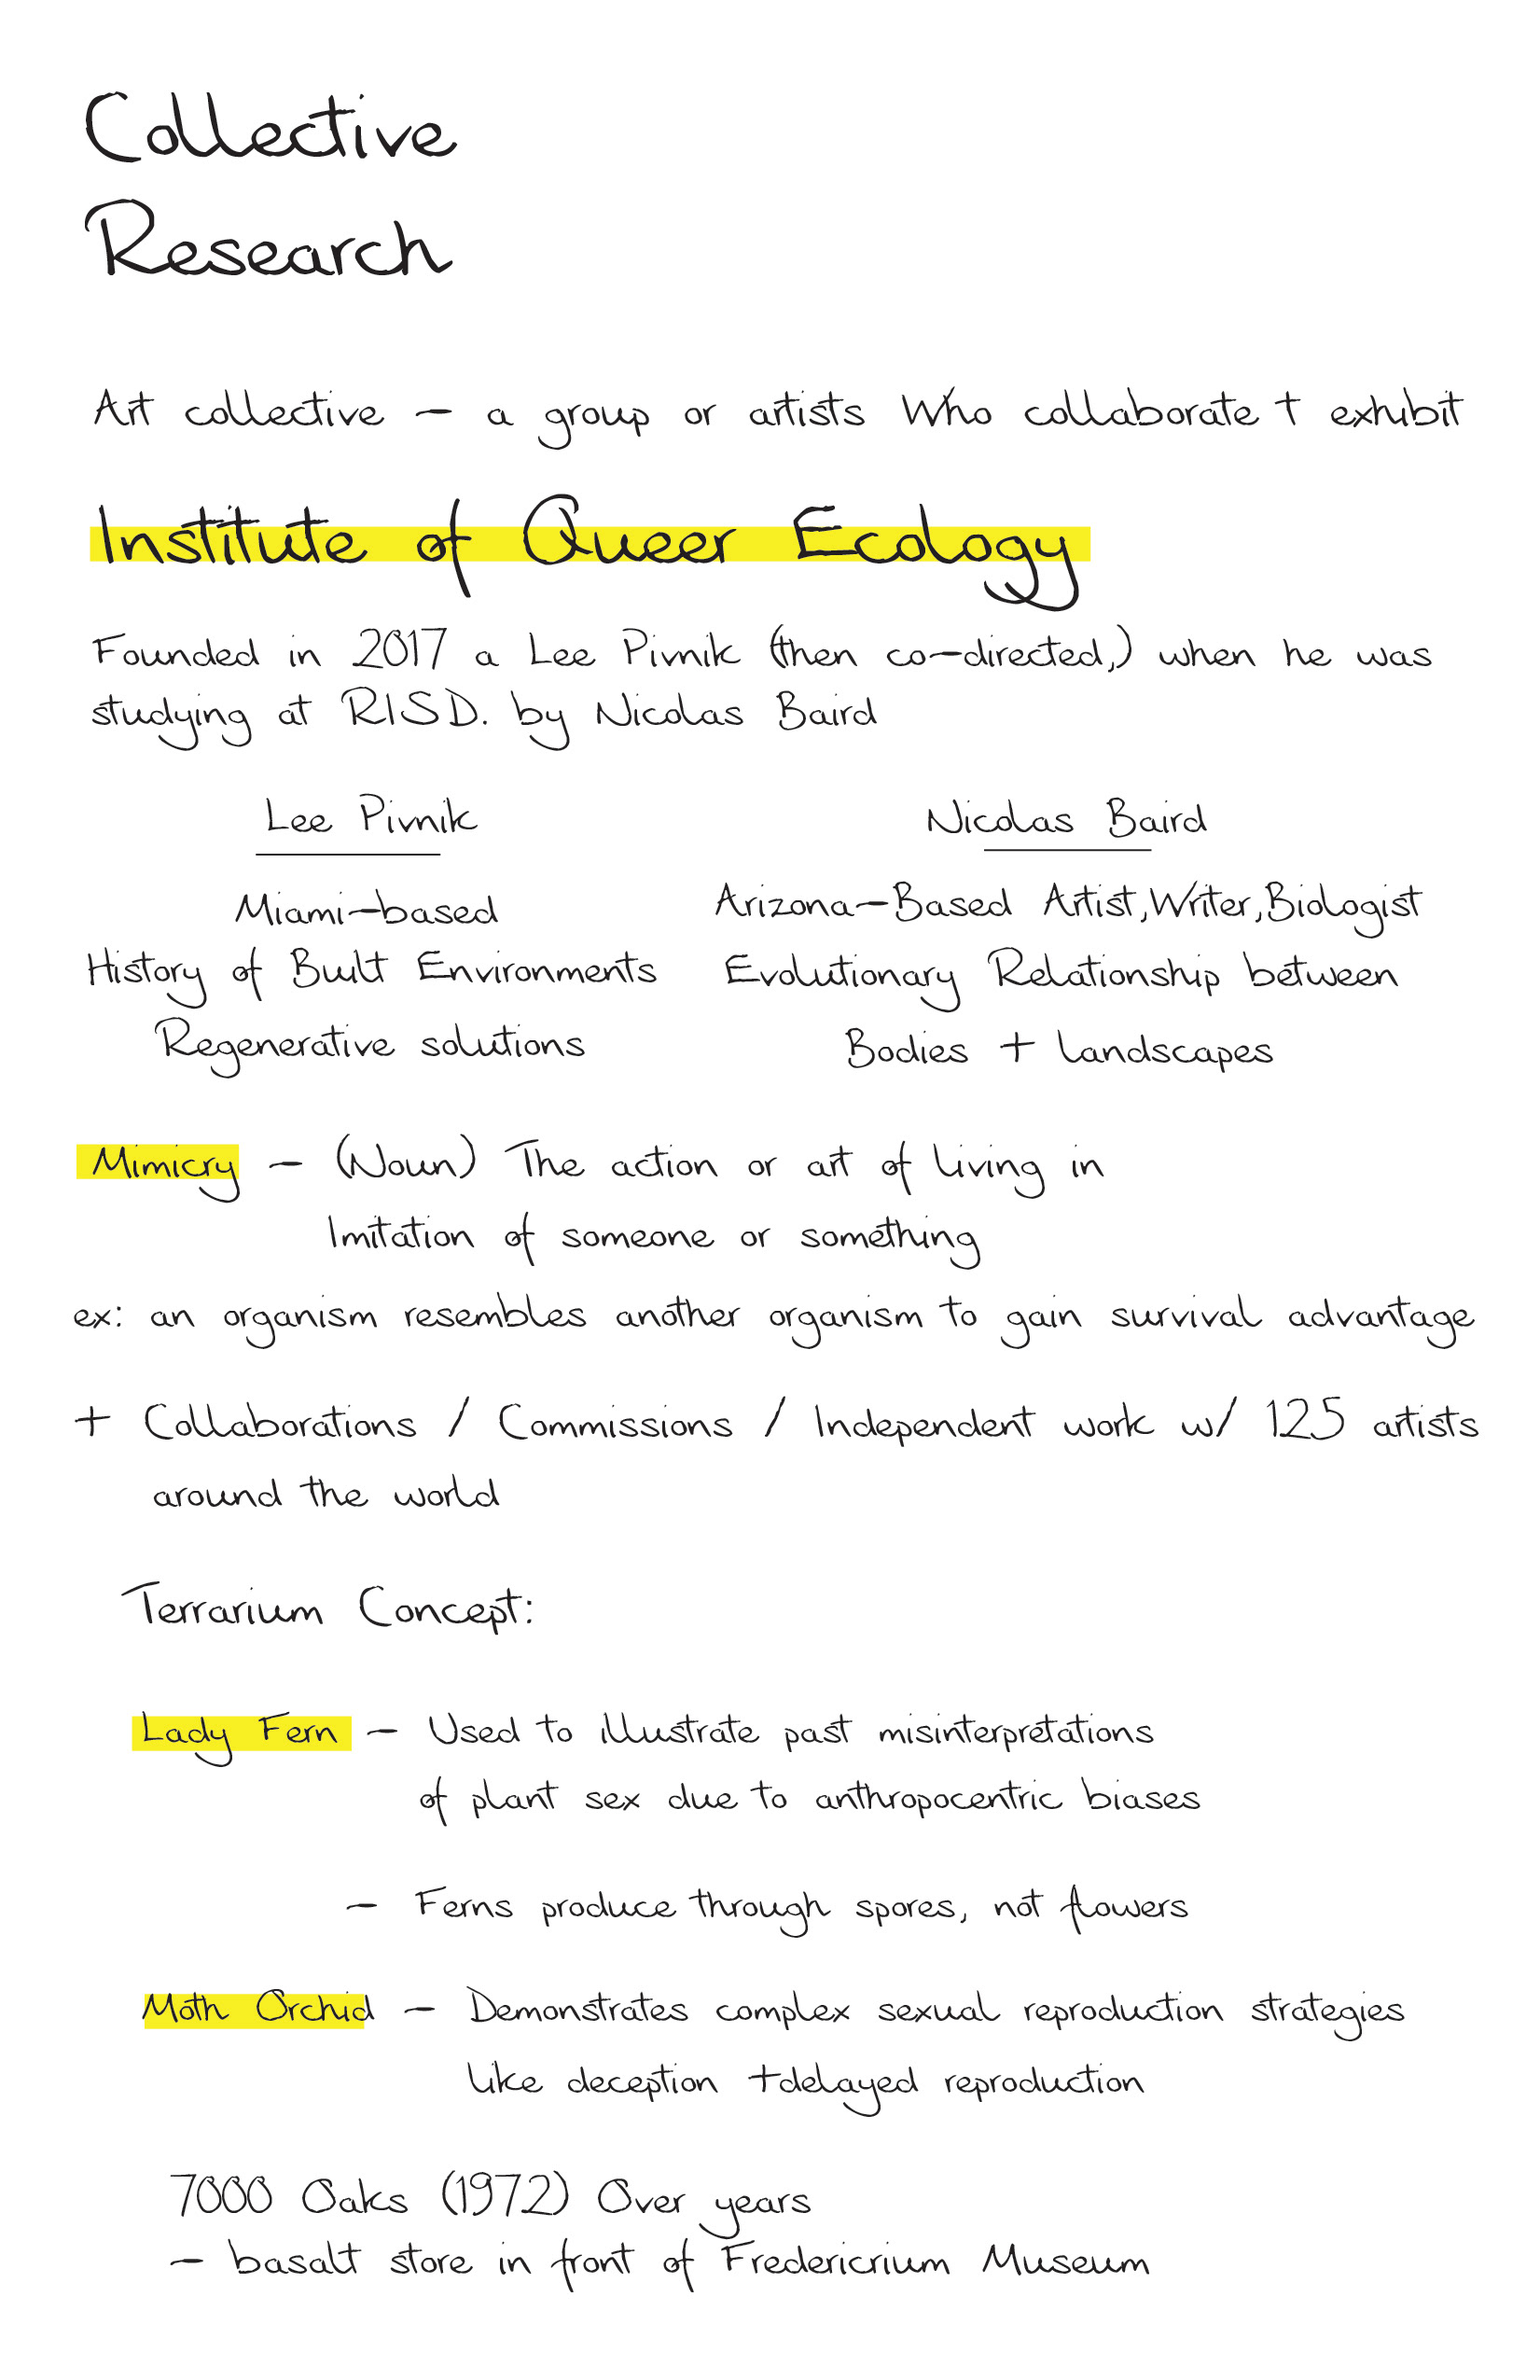 Collective
Research
Art collective – a group or artists Who collaborate + exhibit
Institute of Queer Ecology
Founded in 2017 a Lee Pivnik (then co-directed,) when he was
studying at RISD. by Nicolas Baird
Lee Pivnik
Miami-based
History of Built Environments
Regenerative solutions
Nicolas Baird
Arizona-Based Artist, Writer, Biologist
Evolutionary Relationship between
Bodies + landscapes
Mimicry – (Noun) The action or art of living in
Imitation of someone or something
ex: an organism resembles another organism to gain survival advantage
+ Collaborations / Commissions / Independent work w/ 125 artists
around the world
Terrarium Concept:
Lady Fern – Used to illustrate past misinterpretations
of plant sex due to anthropocentric biases
– Ferns produce through spores, not flowers
Moth Orchid – Demonstrates complex sexual reproduction strategies
like deception +delayed reproduction
7000 Oaks (1972) Over years
– basalt store in front of Fredericrium Museum